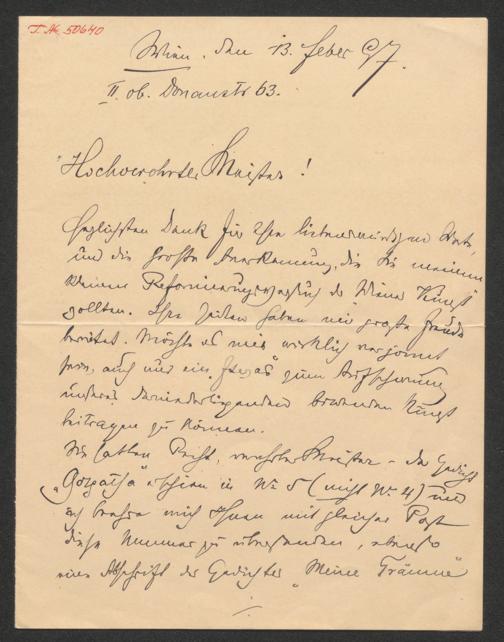 I.N. 50640
Wien, den 13. Feber 97.
II. ob. Donaustr 63.
Hochverehrter Meister!
Herzlichsten Dank für Ihre liebenswürdigen Worte
und die große Anerkennung, die Sie meinem
kleinen Reformierungsversuch der Wiener Kunst
zollten. Ihre Zeilen haben mir große Freude
bereitet. Möchte es mir wirklich vergönnt
sein, auch nur ein „Etwas" zum Aufschwung
unserer darniederliegenden Kunst
beitragen zu können.
Sie hatten Recht, verehrter Meister – das Gedicht
erschien in No 5 (nicht No 4) und
ich beehre mich Ihnen mit gleicher Post
diese Nummer zu übersenden, ebenso
eine Abschrift des Gedichtes „Meine Träume"